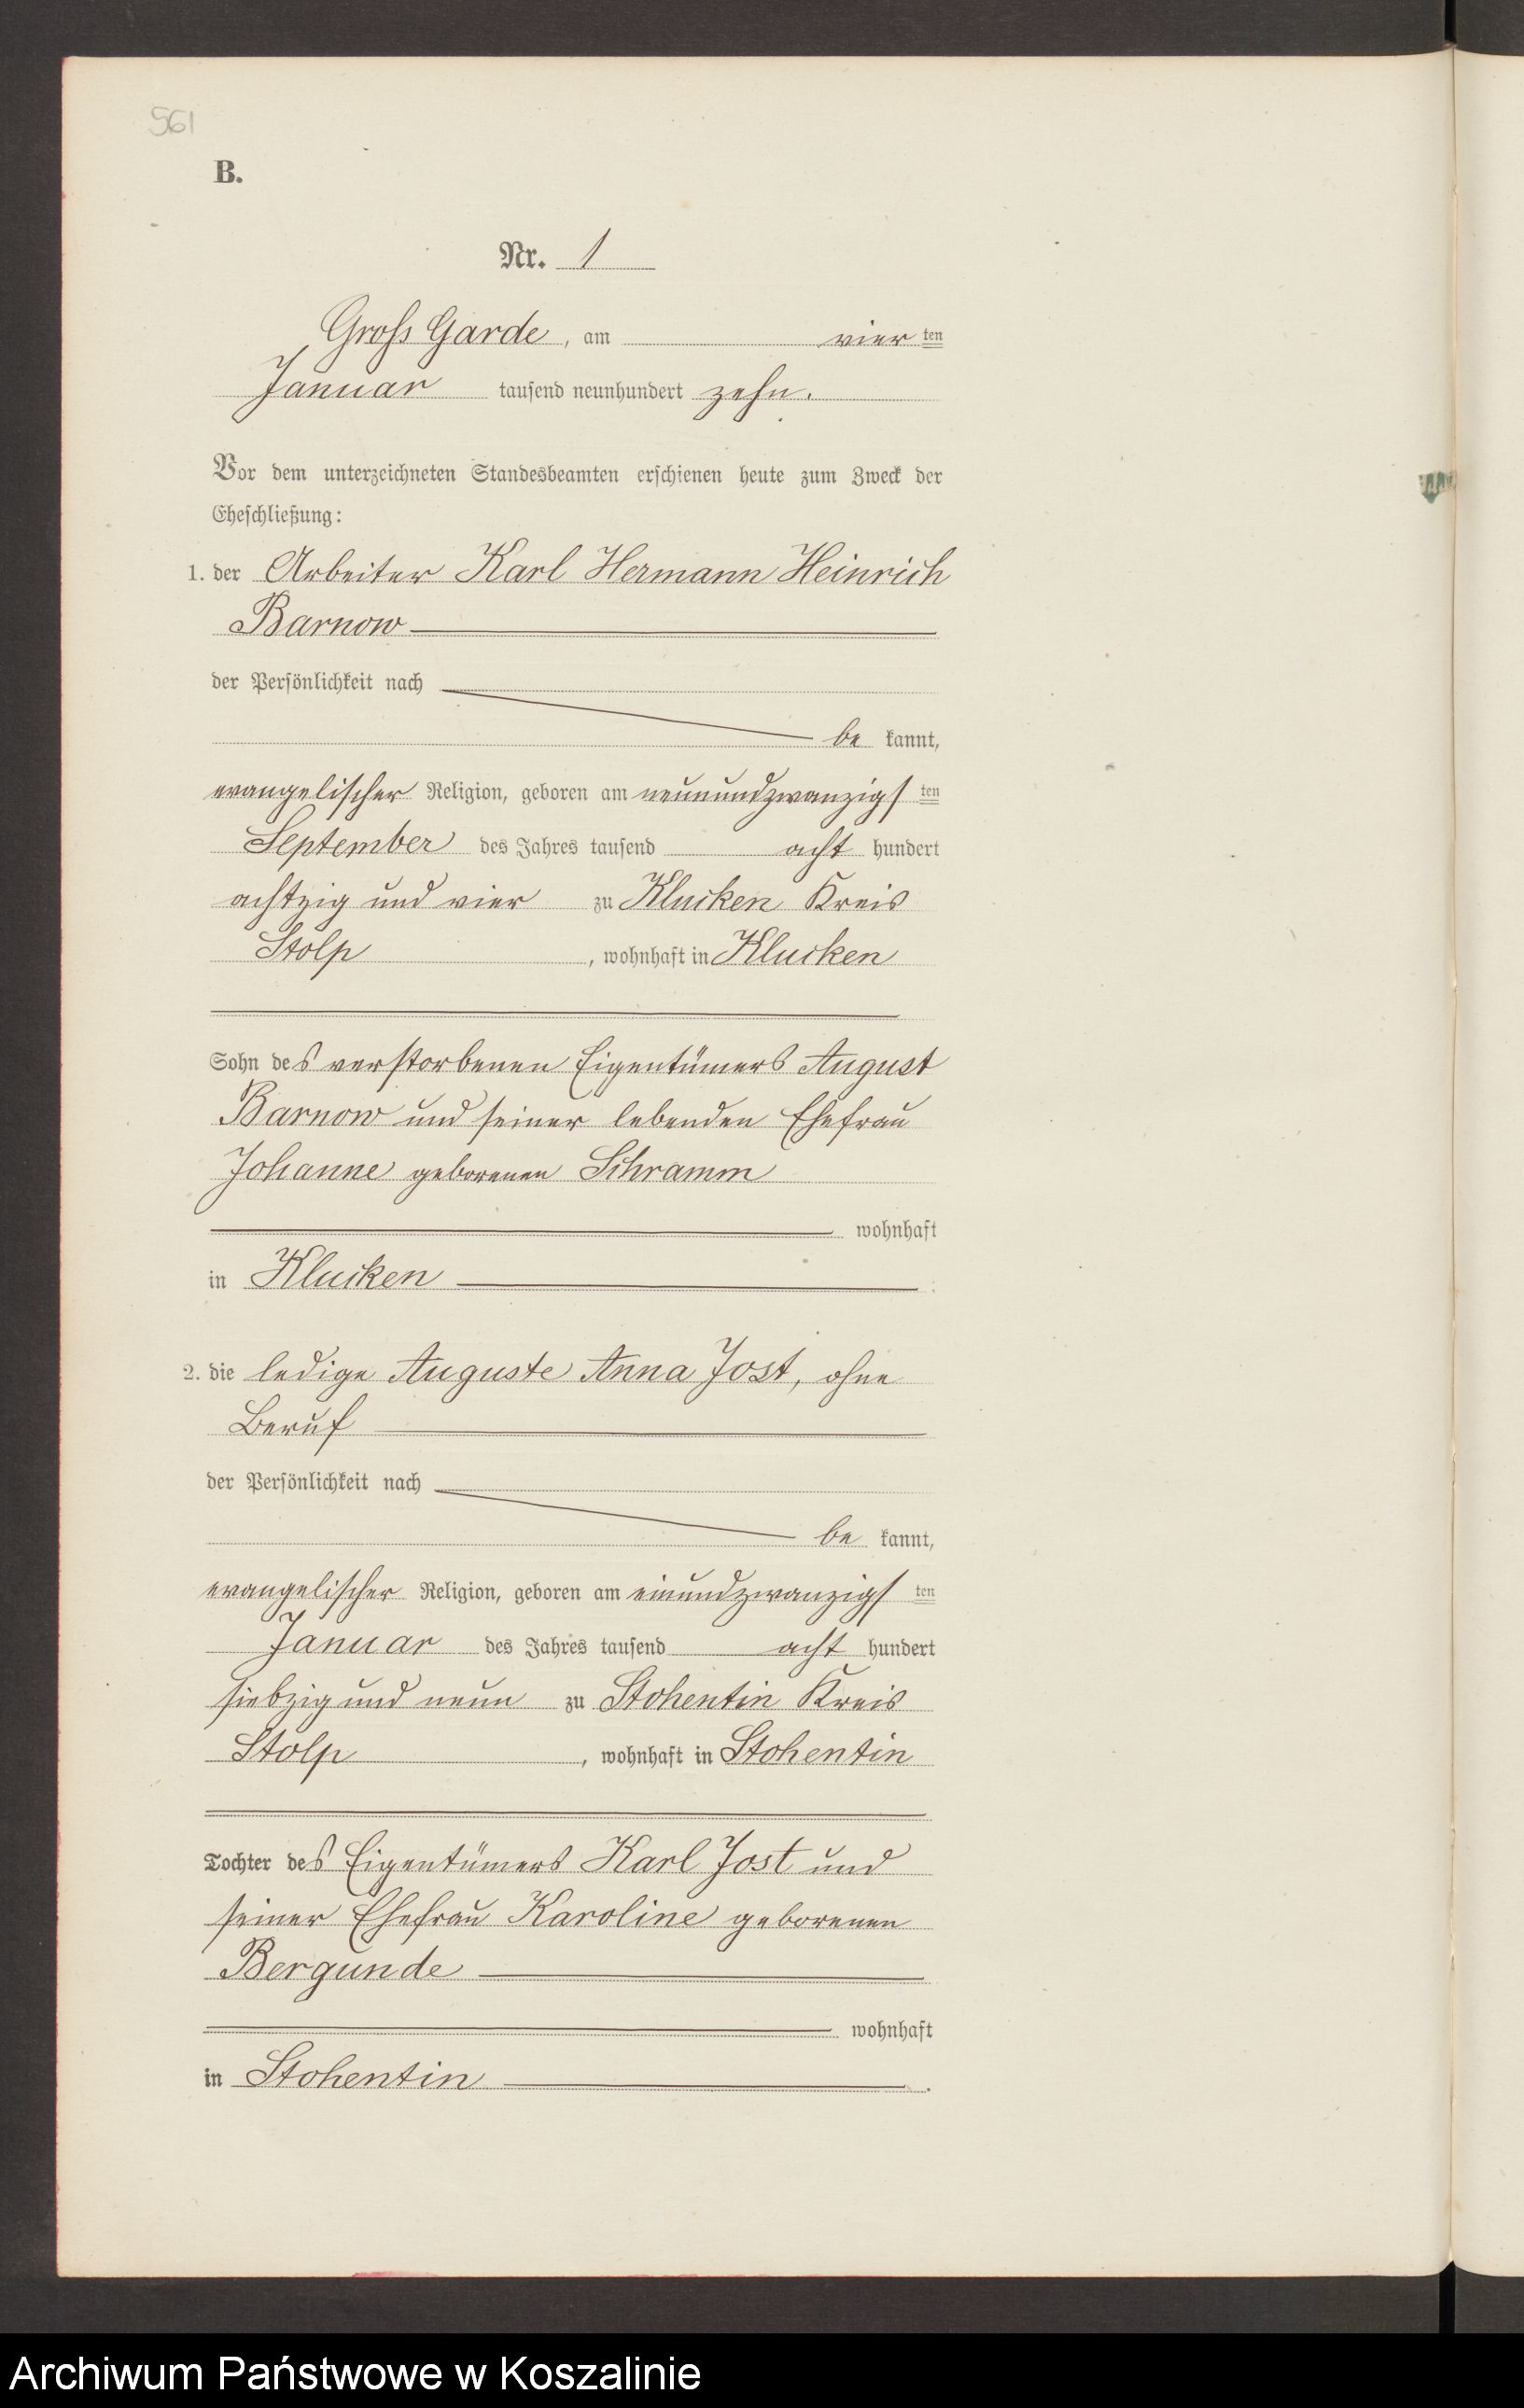 561
B.
Nr. 1
Gross Garde, am vier ten
Januar tausend neunhundert zehn.
Vor dem unterzeichneten Standesbeamten erschienen heute zum Zweck der
Eheschließung:
1. der Arbeiter Karl Hermann Heinrich
Barnow
der Persönlichkeit nach
be kannt,
evangelischer Religion, geboren am neunundzwanzigs ten
September des Jahres tausend acht hundert
achtzig und vier zu Klucken Kreis
Stolp, wohnhaft in Klucken
Sohn des verstorbenen Eigentümers August
Barnow und seiner lebenden Ehefrau
Johanne geborenen Schramm
wohnhaft
in Klucken
2. die ledige Auguste Anna Jost, ohne
Beruf
der Persönlichkeit nach
be kannt,
evangelischer Religion, geboren am einundzwanzigs ten
Januar des Jahres tausend acht hundert
siebzig und neun zu Stohentin Kreis
Stolp, wohnhaft in Stohentin
Tochter des Eigentümers Karl Jost und
seiner Ehefrau Karoline geborenen
Bergunde
wohnhaft
in Stohentin.
Archiwum Państwowe w Koszalinie